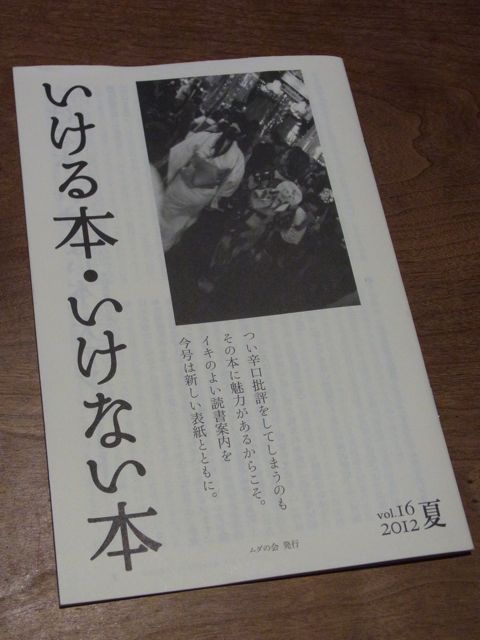 いける本・いけない本
つい辛口批評をしてしまうのも
その本に魅力があるからこそ。
イキのよい読書案内を
今号は新しい表紙とともに。
vol.16
2012 夏
ムダの会 発行